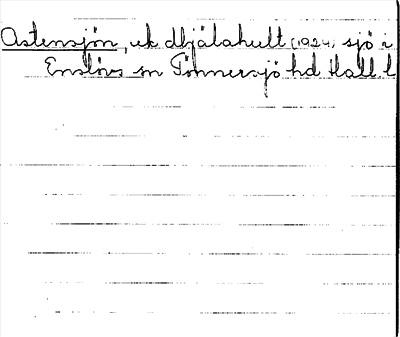 Astensjön, ek Hjälahult (1924) sjö i
Enslövs sn Tönnersjö hd Hall. l